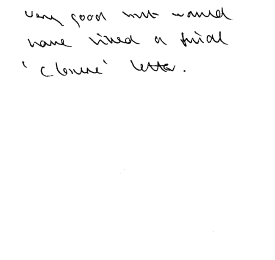 very good but would
have liked a final
'closure' letter.